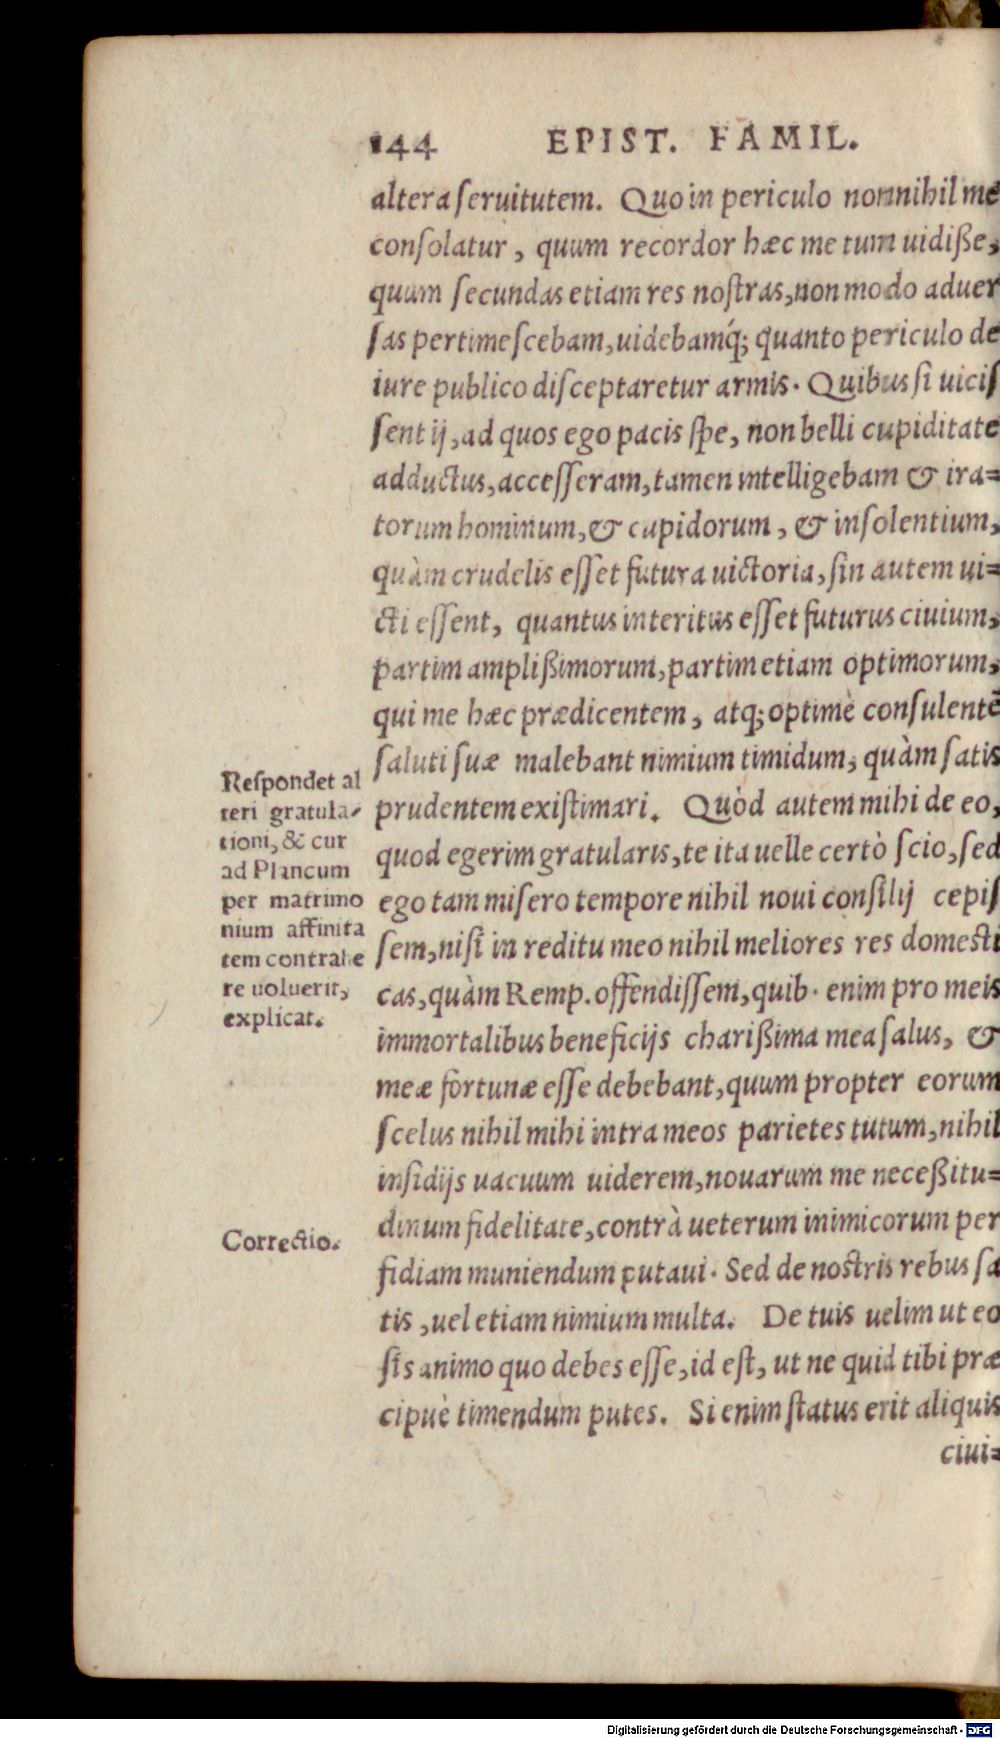 144 EPIST. FAMIL.
altera ſeruitutem. Quo in periculo nonnihil me
conſolatur, quum recordor hæc me tum uidiße,
quum ſecundas etiam res noſtras, non modo aduer
ſas pertimeſcebam, uidebamq́; quanto periculo de
iure publico diſceptaretur armis. Quibus ſi uiciſ
ſent ij, ad quos ego pacis ſpe, non belli cupiditate
adductus, acceſſeram, tamen intelligebam & ira=
torum hominum, & cupidorum, & inſolentium,
quàm crudelis eſſet futura uictoria, ſin autem ui=
cti eſſent, quantus interitus eſſet futurus ciuium,
partim amplißimorum, partim etiam optimorum,
qui me hæc prædicentem, atq; optimè conſulentē
ſaluti ſuæ malebant nimium timidum, quàm ſatis
prudentem exiſtimari. Quòd autem mihi de eo,
quod egerim gratularis, te ita uelle certò ſcio, ſed
ego tam miſero tempore nihil noui conſilij cepiſ
ſem, niſi in reditu meo nihil meliores res domeſti
cas, quàm Remp. offendiſſem, quib. enim pro meis
immortalibus beneficijs charißima mea ſalus, &
meæ fortunæ eſſe debebant, quum propter eorum
ſcelus nihil mihi intra meos parietes tutum, nihil
inſidijs uacuum uiderem, nouarum me neceßitu=
dinum fidelitate, contrà ueterum inimicorum per
fidiam muniendum putaui. Sed de noſtris rebus ſa
tis, uel etiam nimium multa. De tuis uelim ut eo
ſis animo quo debes eſſe, id eſt, ut ne quid tibi præ
cipuè timendum putes. Si enim ſtatus erit aliquis
ciui=
Reſpondet al
teri gratula-
tioni, & cur
ad Plancum
per matrimo
nium affinita
tem contrahe
re uoluerit,
explicat.
Correctio.
Digitalisierung gefördert durch die Deutsche Forschungsgemeinschaft - DFG